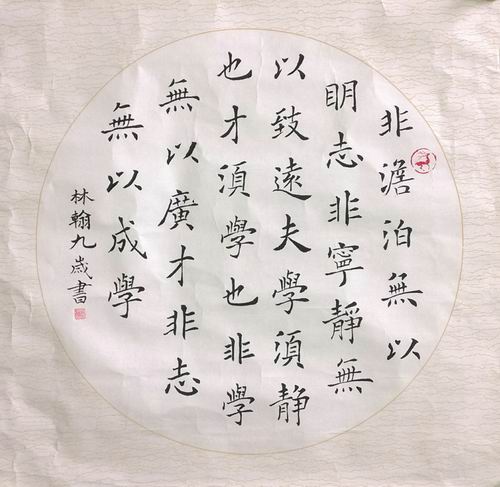 非澹泊無以
明志非寧靜無
以致遠夫學須静
也才須學也非學
無以廣才非志
無以成學
林翰九歲書